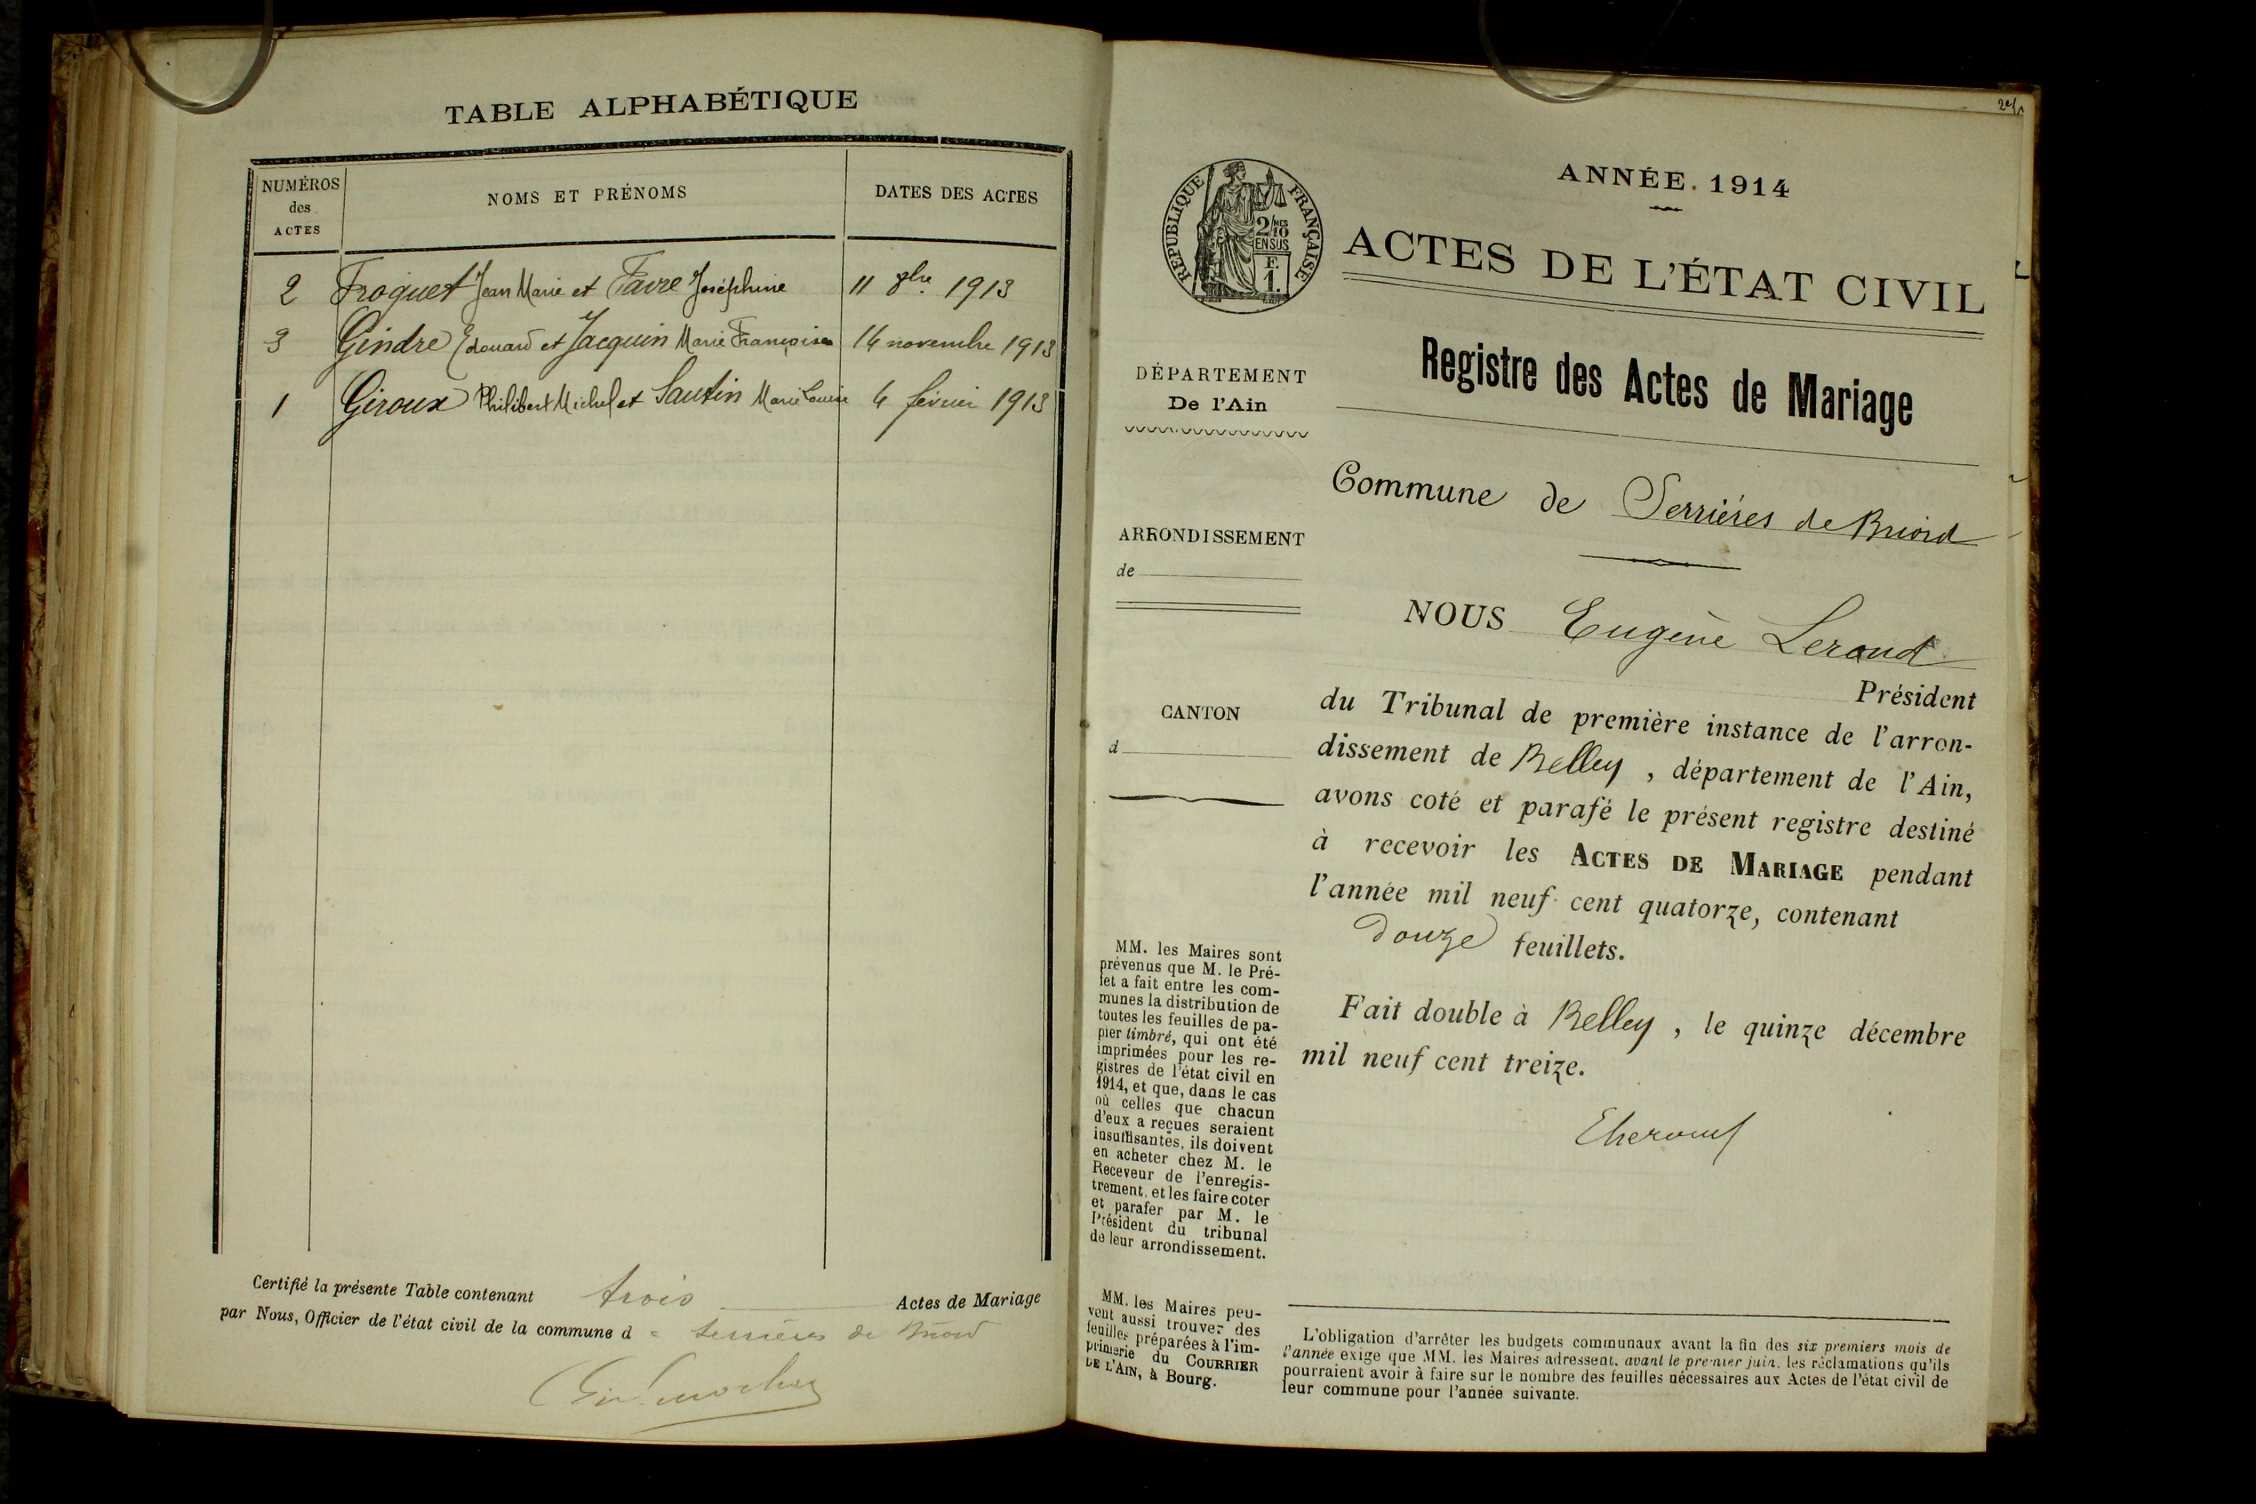 TABLE ALPHABÉTIQUE
NUMÉROS
des
ACTES
NOMS ET PRÉNOMS
DATES DES ACTES
2 Froquet Jean Marie et Favre Joséphine 11 8bre 1913
3 Gindre Edouard et Jacquin Marie Françoise 14 novembre 1913
1 Giroux Philibert Michel et Sautin Marie Louise 4 février 1913
Certifié la présente Table contenant trois Actes de Mariage
par Nous, Officier de l'état civil de la commune de Serrières de Briord
ANNÉE. 1914
RÉPUBLIQUE FRANÇAISE
2/10 MES
EN SUS
F.
1.
ACTES DE L'ÉTAT CIVIL
Registre des Actes de Mariage
DÉPARTEMENT
De l'Ain
Commune de Serrières de Briord
ARRONDISSEMENT
de
NOUS Eugène Leroud
Président
CANTON
d
du Tribunal de première instance de l'arron-
dissement de Belley, département de l'Ain,
avons coté et parafé le présent registre destiné
à recevoir les ACTES DE MARIAGE pendant
l'année mil neuf cent quatorze, contenant
douze feuillets.
Fait double à Belley, le quinze décembre
mil neuf cent treize.
MM. les Maires sont
prévenus que M. le Pré-
fet a fait entre les com-
munes la distribution de
toutes les feuilles de pa-
pier timbré, qui ont été
imprimées pour les re-
gistres de l'état civil en
1914, et que, dans le cas
où celles que chacun
d'eux a reçues seraient
insuffisantes, ils doivent
en acheter chez M. le
Receveur de l'enregis-
trement, et les faire coter
et parafer par M. le
Président du tribunal
de leur arrondissement.
MM. les Maires peu-
vent aussi trouver des
feuilles préparées à l'im-
primerie du COURRIER
DE L'AIN, à Bourg.
L'obligation d'arrêter les budgets communaux avant la fin des six premiers mois de
l'année exige que MM. les Maires adressent, avant le premier juin, les réclamations qu'ils
pourraient avoir à faire sur le nombre des feuilles nécessaires aux Actes de l'état civil de
leur commune pour l'année suivante.